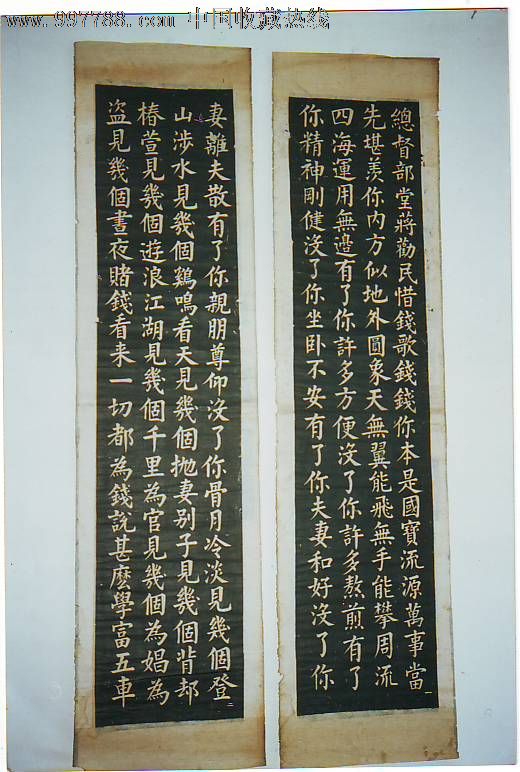 www.997788.com 中国收藏热线
總督部堂蔣勸民惜錢歌錢錢你本是國寶流源萬事當
先堪羨你内方似地外圓象天無翼能飛無手能攀周流
四海運用無邊有了你許多方便沒了你許多熬煎有了
你精神剛健沒了你坐卧不安有了你夫妻和好沒了你
妻離夫散有了你親朋尊仰沒了你骨月冷淡見幾個登
山涉水見幾個鷄鳴看天見幾個抛妻别子見幾個背却
椿萱見幾個遊浪江湖見幾個千里為官見幾個為娼為
盗見幾個晝夜賭錢看来一切都為錢說甚麽學富五車